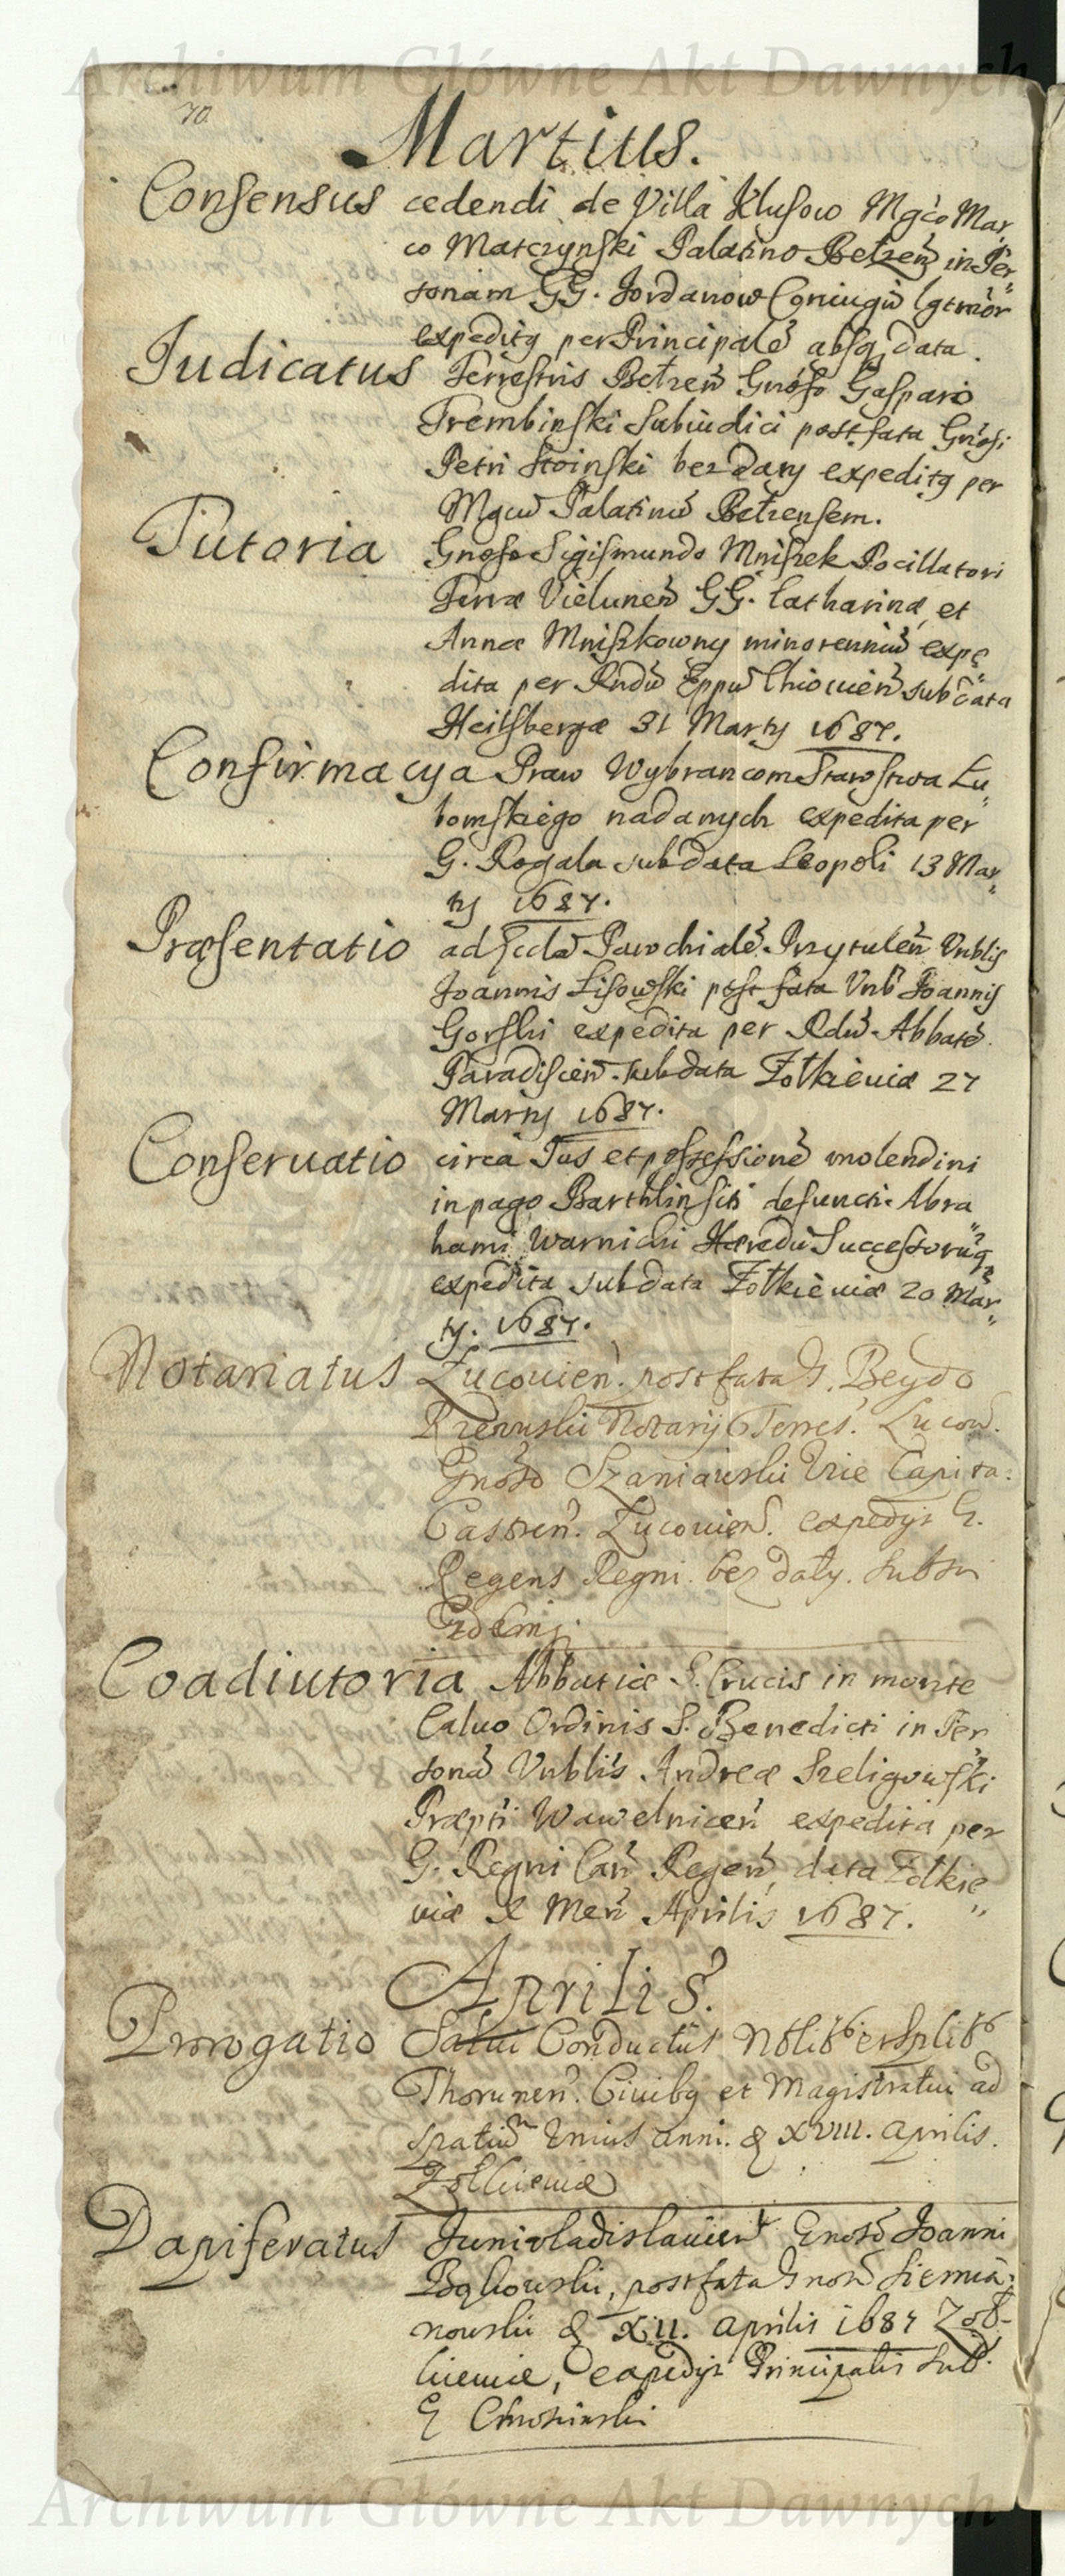 Archiwum Główne Akt Dawnych
70
Martius.
Consensus cedendi de Villa Klusow Mgco Mar
co Matczynski Palatino Betzen in Per
sonam GG. Jordanow Coniugu lgtmor
expeditg per Principale absq data.
Judicatus Terrestris Betzen Gnoso Gaspario
Trembinski Subiudici post fata Gnosi
Petri Stoinski bez daty expeditg per
Mgcu Palatinu Betzensem.
Tutoria Gnoso Sigismundo Mniszek Pocillatori
Terræ Vielunen GG. Catharinæ et
Annæ Mniszkowny minorenniu expe
dita per Rndu Eppu Chiouien sub data
Heilsbergæ 31 Martij 1687.
Confirmacya Praw Wybrancom Starostwa Lu
bomskiego nadanych expedita per
G. Rogala sub data Leopoli 13 Mar
tij 1687.
Præsentatio ad Eccla Parochiale Przytulen Vnblis
Joannis Lisowski post fata Vnb Joannis
Gorski expedita per Rdu Abbate
Paradisien. sub data Zołkieuiæ 27
Martij 1687.
Conseruatio circa Jus et possessione molendini
in pago Barthlin siti defuncti Abra
hami Warnichi Hæredu Successoruq
expedita sub data Zołkieuiæ 20 Mar
tij. 1687.
Notariatus Lucouien. post fata G. Beydo
Rzewuski Notarij Terres. Lucow.
Gnoso Szaniawski Vice Capita.
Castren. Lucouien. expedyt G.
Regens Regni bez daty.
Coadiutoria Abbatiæ S. Crucis in monte
Caluo Ordinis S. Benedicti in Per
sona Vnblis Andreæ Szeligowski
Præpti Wawelnicen expedita per
G. Regni Can Regen, data Zołkie
uiæ X Men Aprilis 1687.
Aprilis.
Prrogatio Salui Conductus Nblib9 et Splib9
Thorunen. Ciuibg et Magistratui ad
spatiu Unius anni. & XVIII. Aprilis.
Zołkieuiæ
Dapiferatus Juniuladislauien Gnoso Joanni
Bąkowski, post fata Gnosi Siemia
nowski & XII. Aprilis 1687 Zoł-
kieuiæ, expedyt Principalis sub.
G Chrosinski
Archiwum Główne Akt Dawnych